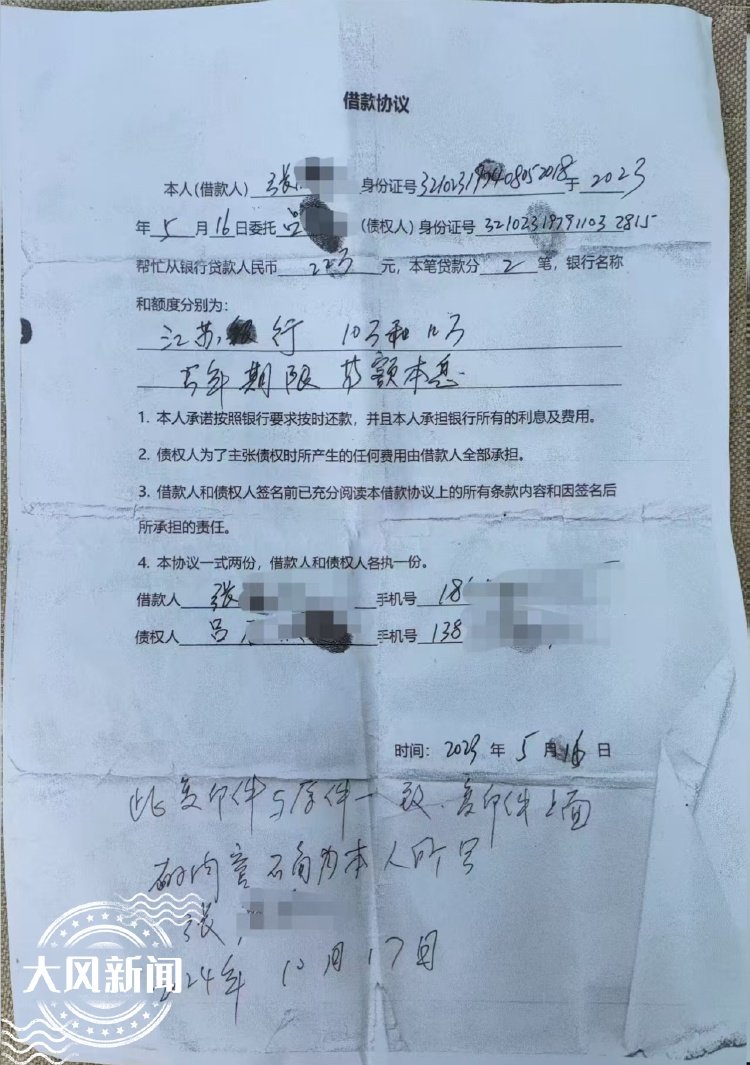 借款协议
本人(借款人) 张 身份证号 于 2023
年 5 月 16 日委托 吕 (债权人) 身份证号 321023197911032815
帮忙从银行贷款人民币 22万 元,本笔贷款分 2 笔,银行名称
和额度分别为:
江苏银行 10万和12万
期限 等额本息
1. 本人承诺按照银行要求按时还款,并且本人承担银行所有的利息及费用。
2. 债权人为了主张债权时所产生的任何费用由借款人全部承担。
3. 借款人和债权人签名前已充分阅读本借款协议上的所有条款内容和因签名后
所承担的责任。
4. 本协议一式两份,借款人和债权人各执一份。
借款人 张 手机号 18
债权人 吕 手机号 138
时间: 2023 年 5 月 16 日
此复印件与原件一致,复印件上面
的内容 为本人所写
张
2024年 10月17日
大风新闻